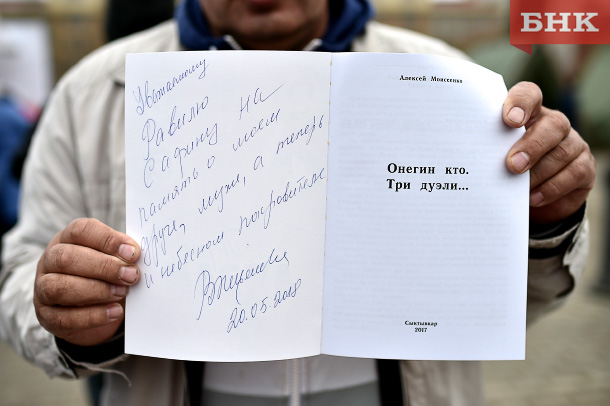 БНК
Уважаемому
Равилю
Сафину на
память о моём
друге, муже, а теперь
и небесном покровителе
20.05.2018
Алексей Моисеенко
Онегин кто.
Три дуэли...
Сыктывкар
2017